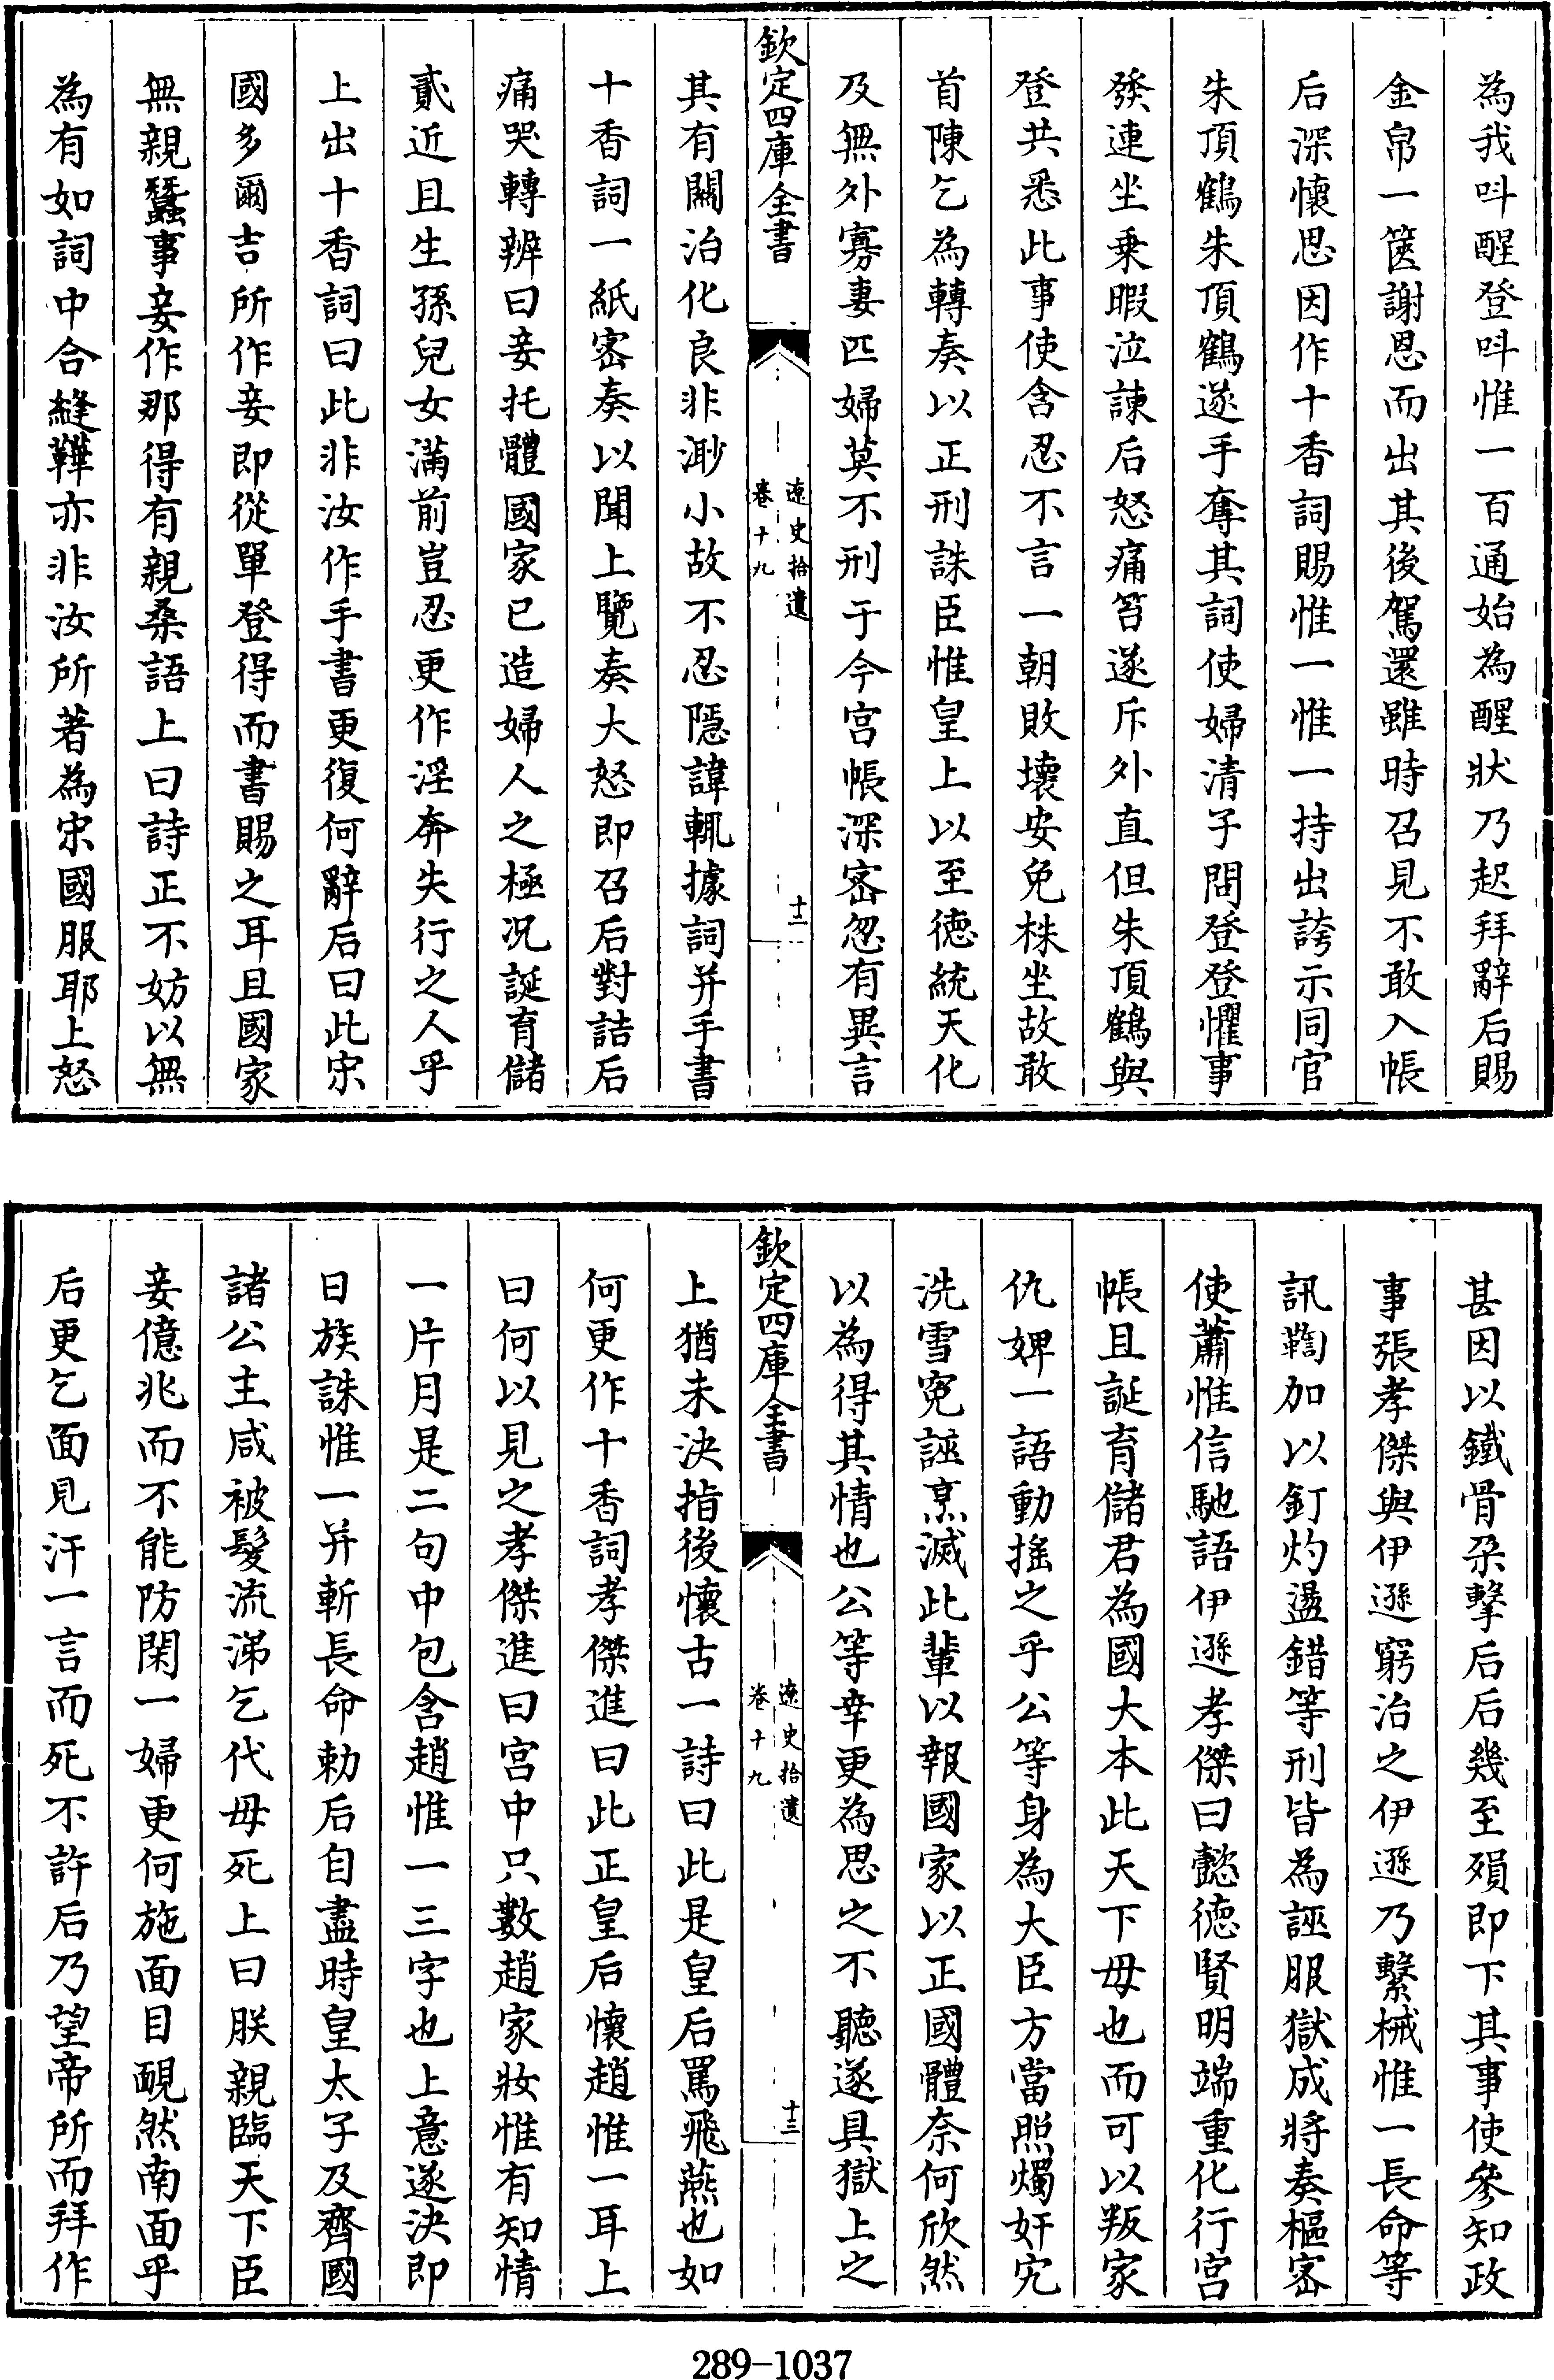 為我呌醒登呌惟一百通始為醒狀乃起拜辭后賜
金帛一篋謝恩而出其後駕還雖時召見不敢入帳
后深懷思因作十香詞賜惟一惟一持出誇示同官
朱頂鶴朱頂鶴遂手奪其詞使婦清子問登登懼事
發連坐乗暇泣諌后怒痛笞遂斥外直但朱頂鶴與
登共悉此事使含忍不言一朝敗壞安免株坐故敢
首陳乞為轉奏以正刑誅臣惟皇上以至徳統天化
及無外寡妻匹婦莫不刑于今宫帳深宻忽有異言
欽定四庫全書
遼史拾遺
卷十九
十二
其有關治化良非渺小故不忍隠諱輒據詞并手書
十香詞一紙宻奏以聞上覽奏大怒即召后對詰后
痛哭轉辨曰妾托體國家已造婦人之極况誕育儲
貳近且生孫兒女滿前豈忍更作淫奔失行之人乎
上出十香詞曰此非汝作手書更復何辭后曰此宋
國多爾吉所作妾即從單登得而書賜之耳且國家
無親蠶事妾作那得有親桑語上曰詩正不妨以無
為有如詞中合縫鞾亦非汝所著為宋國服耶上怒
甚因以鐵骨朶擊后后幾至殞即下其事使參知政
事張孝傑與伊遜窮治之伊遜乃繫械惟一長命等
訊鞫加以釘灼盪錯等刑皆為誣服獄成將奏樞宻
使蕭惟信馳語伊遜孝傑曰懿徳賢明端重化行宫
帳且誕育儲君為國大本此天下母也而可以叛家
仇婢一語動揺之乎公等身為大臣方當照燭奸宄
洗雪寃誣烹滅此輩以報國家以正國體奈何欣然
以為得其情也公等幸更為思之不聽遂具獄上之
欽定四庫全書
遼史拾遺
卷十九
十三
上猶未決指後懷古一詩曰此是皇后罵飛燕也如
何更作十香詞孝傑進曰此正皇后懷趙惟一耳上
曰何以見之孝傑進曰宫中只數趙家妝惟有知情
一片月是二句中包含趙惟一三字也上意遂決即
日族誅惟一并斬長命勅后自盡時皇太子及齊國
諸公主咸被髮流涕乞代母死上曰朕親臨天下臣
妾億兆而不能防閑一婦更何施面目靦然南面乎
后更乞面見汗一言而死不許后乃望帝所而拜作
289-1037